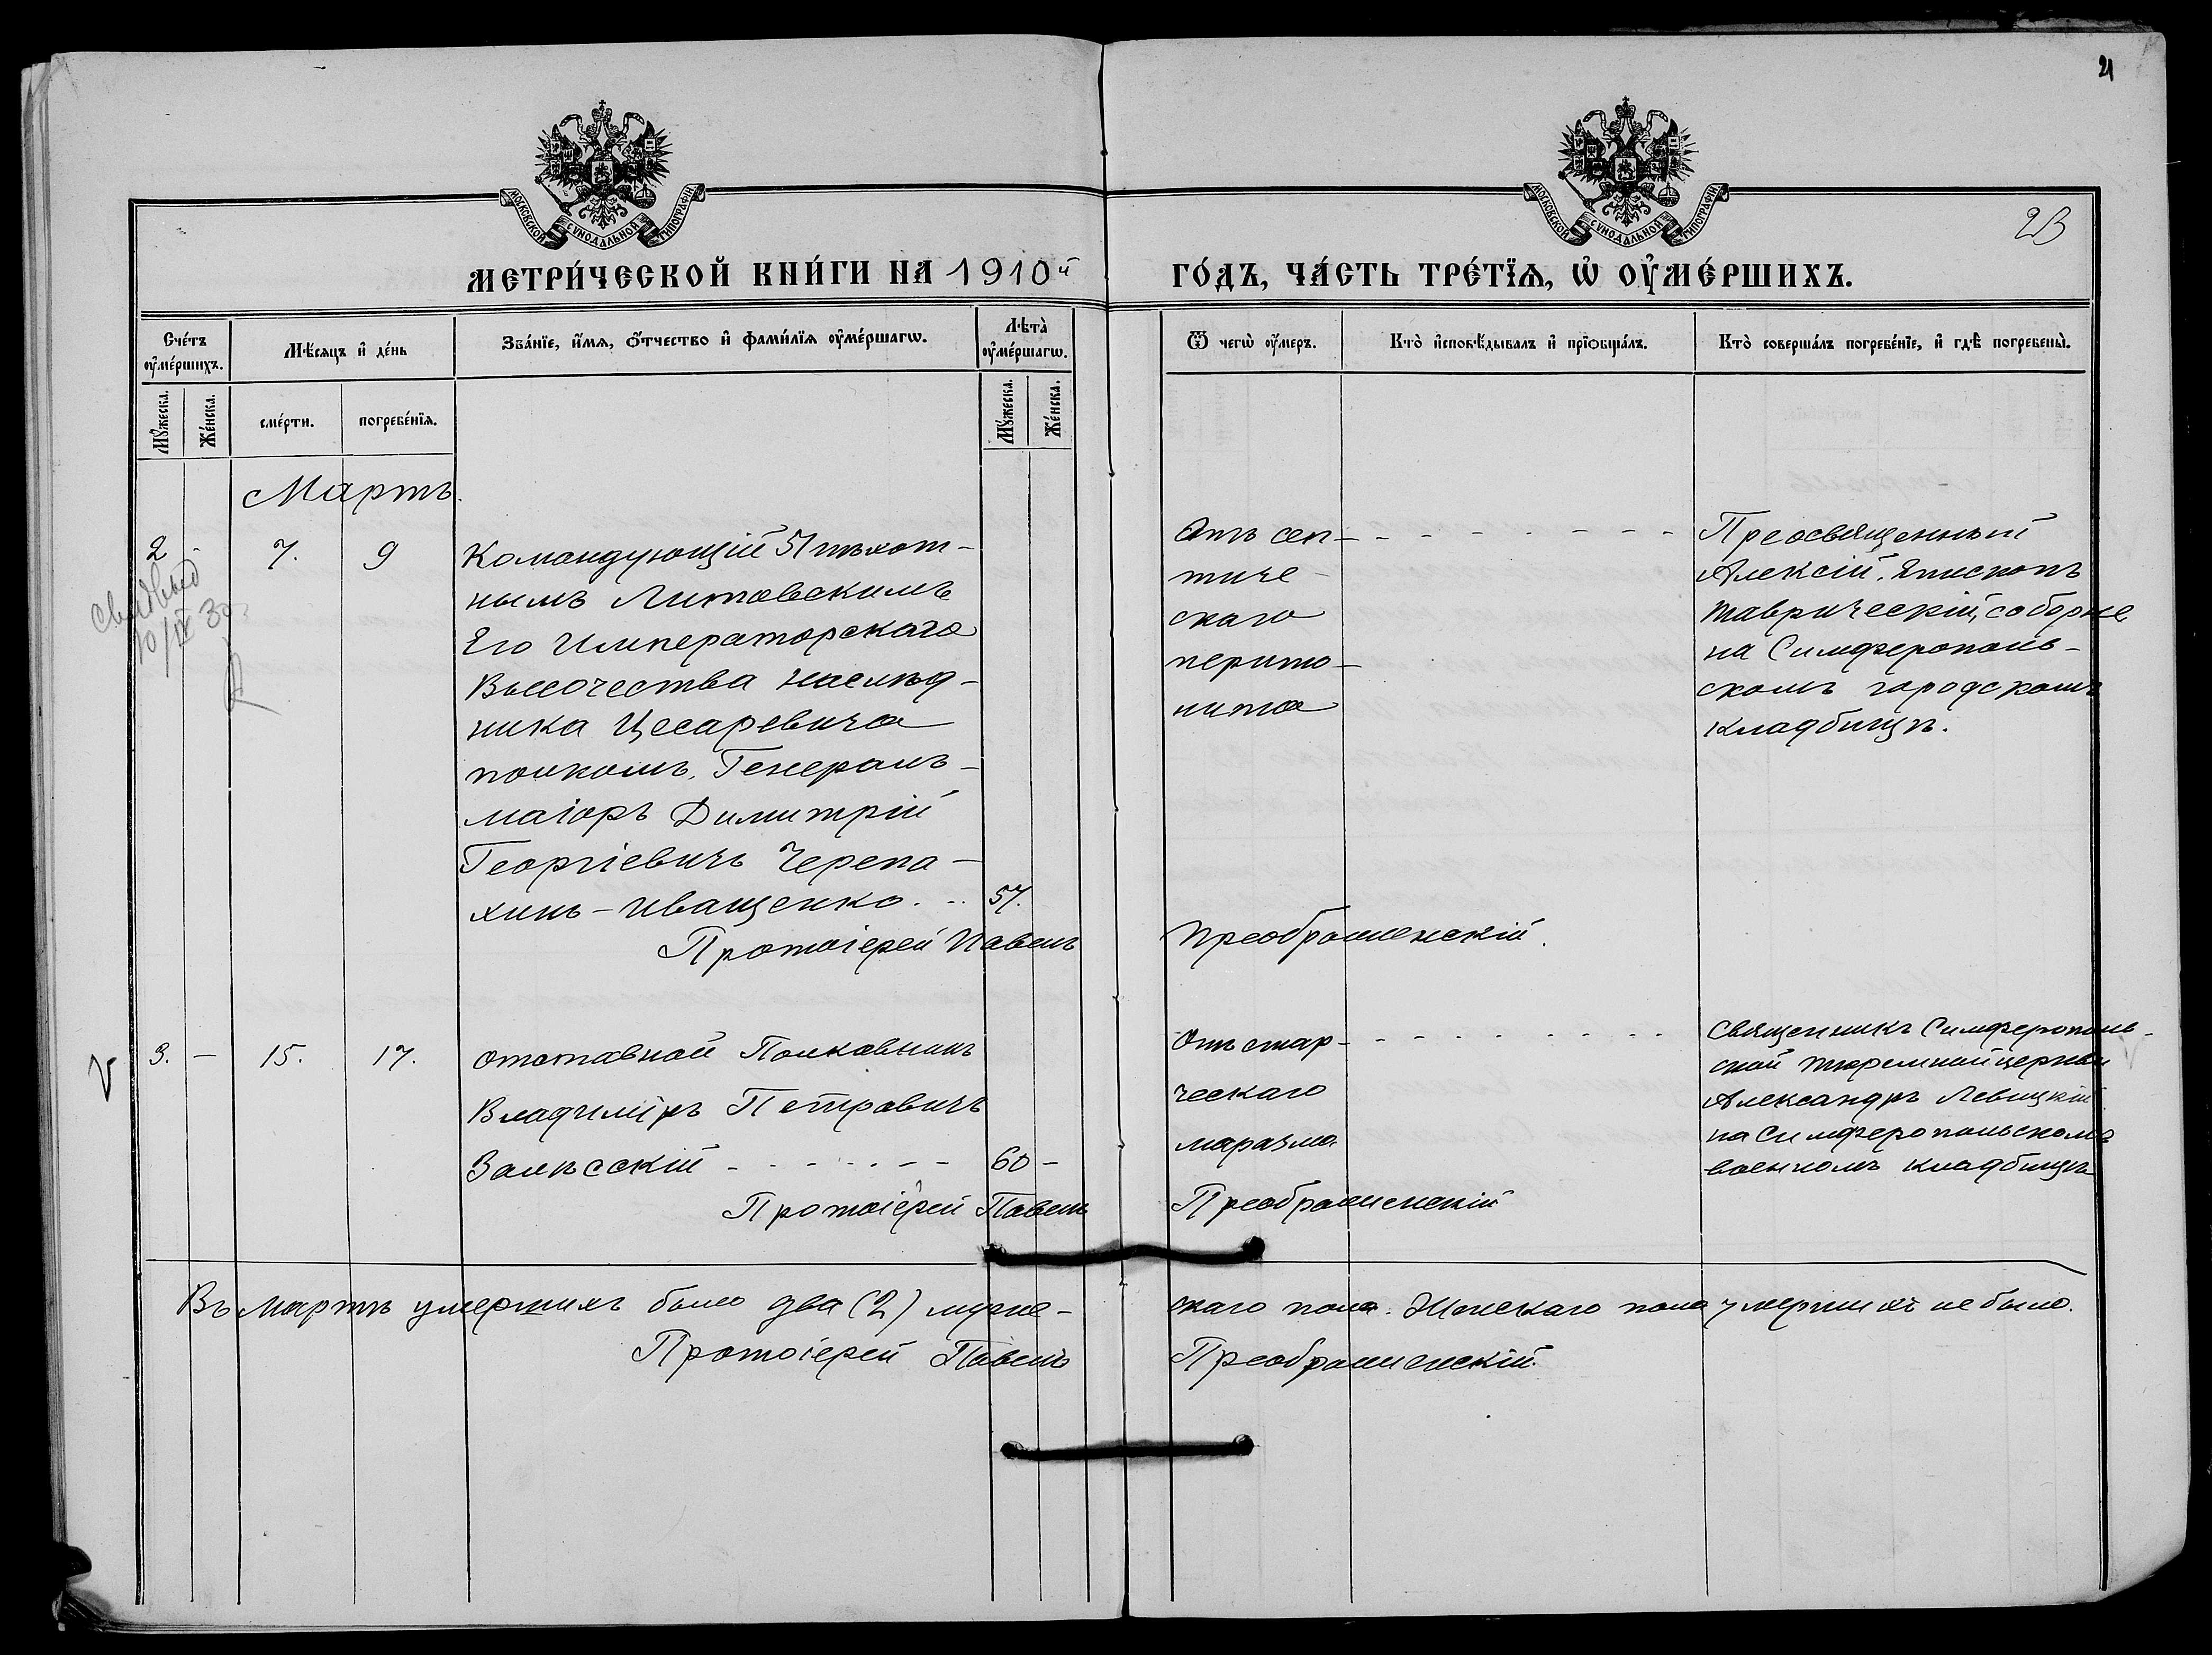 21
23
МОСКОВСКОЙ СУНОДАЛЬНОЙ ТИПОГРАФІИ
МОСКОВСКОЙ СУНОДАЛЬНОЙ ТИПОГРАФІИ
МЕТРИ́ЧЕСКОЙ КНИ́ГИ НА 1910й ГО́ДЪ, ЧА́СТЬ ТРЕ́ТЇѦ, Ѡ҆ ОУ҆МЕ́РШИХЪ.
Сче́тъ оу҆ме́ршихъ.
Мѣ́сяцъ и҆ де́нь
Зва́нїе, и҆́мѧ, ѻ҆́тчество и҆ фами́лїѧ оу҆ме́ршагѡ.
Лѣта̀ оу҆ме́ршагѡ.
Ѿ чегѡ̀ оу҆́меръ.
Кто̀ и҆сповѣ́дывалъ и҆ прїѡбща́лъ.
Кто̀ соверша́лъ погребе́нїе, и҆ гдѣ̀ погребены̀.
Мꙋ́жеска.
Же́нска.
сме́рти.
погребе́нїѧ.
Мꙋ́жеска.
Же́нска.
Мартъ.
2 - 7. 9
10/IX 30
Командующій 51 пѣхот-
нымъ Литовскимъ
Его Императорскаго
Высочества Наслѣд-
ника Цесаревича
полкомъ, Генералъ-
маіоръ Димитрій
Георгіевичъ Черепа-
хинъ-Иващенко. - . 57.
Отъ сеп- - - - - - - -
тиче-
скаго
перито-
нита
Преосвященный
Алексій, Епископъ
Таврическій, соборне
на Симферополь-
скомъ городскомъ
кладбищѣ.
Протоіерей Павелъ Преображенскій.
V 3. - 15. 17.
Отставной Полковникъ
Владиміръ Петровичъ
Залѣсскій - - - - - - - 60 -
Отъ стар- - - - - - - -
ческаго
маразма
Священникъ Симферополь-
ской тюремной церкви
Александръ Левицкій
на Симферопольскомъ
военномъ кладбищѣ
Протоіерей Павелъ Преображенскій
Въ Мартѣ умершихъ было два (2) муже- скаго пола. Женскаго пола умершихъ не было.
Протоіерей Павелъ Преображенскій.